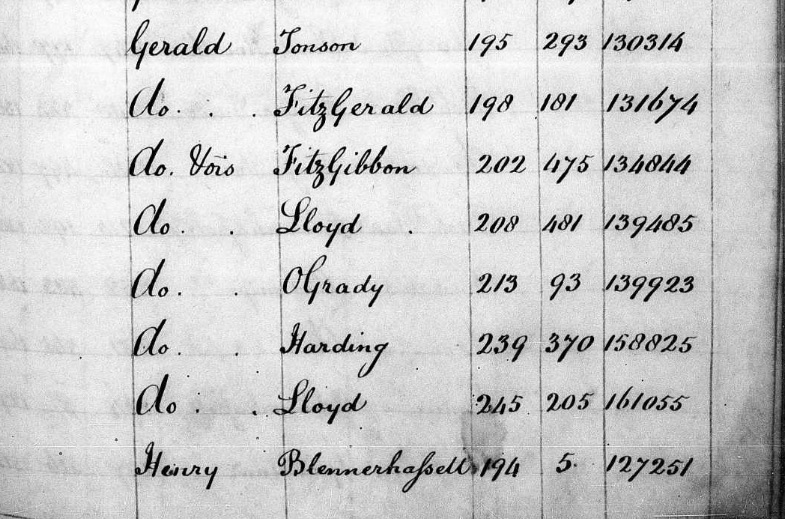 Gerald Tonson 195 293 130314
do. . . FitzGerald 198 181 131674
do. Vois FitzGibbon 202 475 134844
do . Lloyd . 208 481 139485
do. . OGrady 213 93 139923
do. . Harding 239 370 158825
do . . Lloyd 245 205 161055
Henry Blennerhassett 194 5. 127251